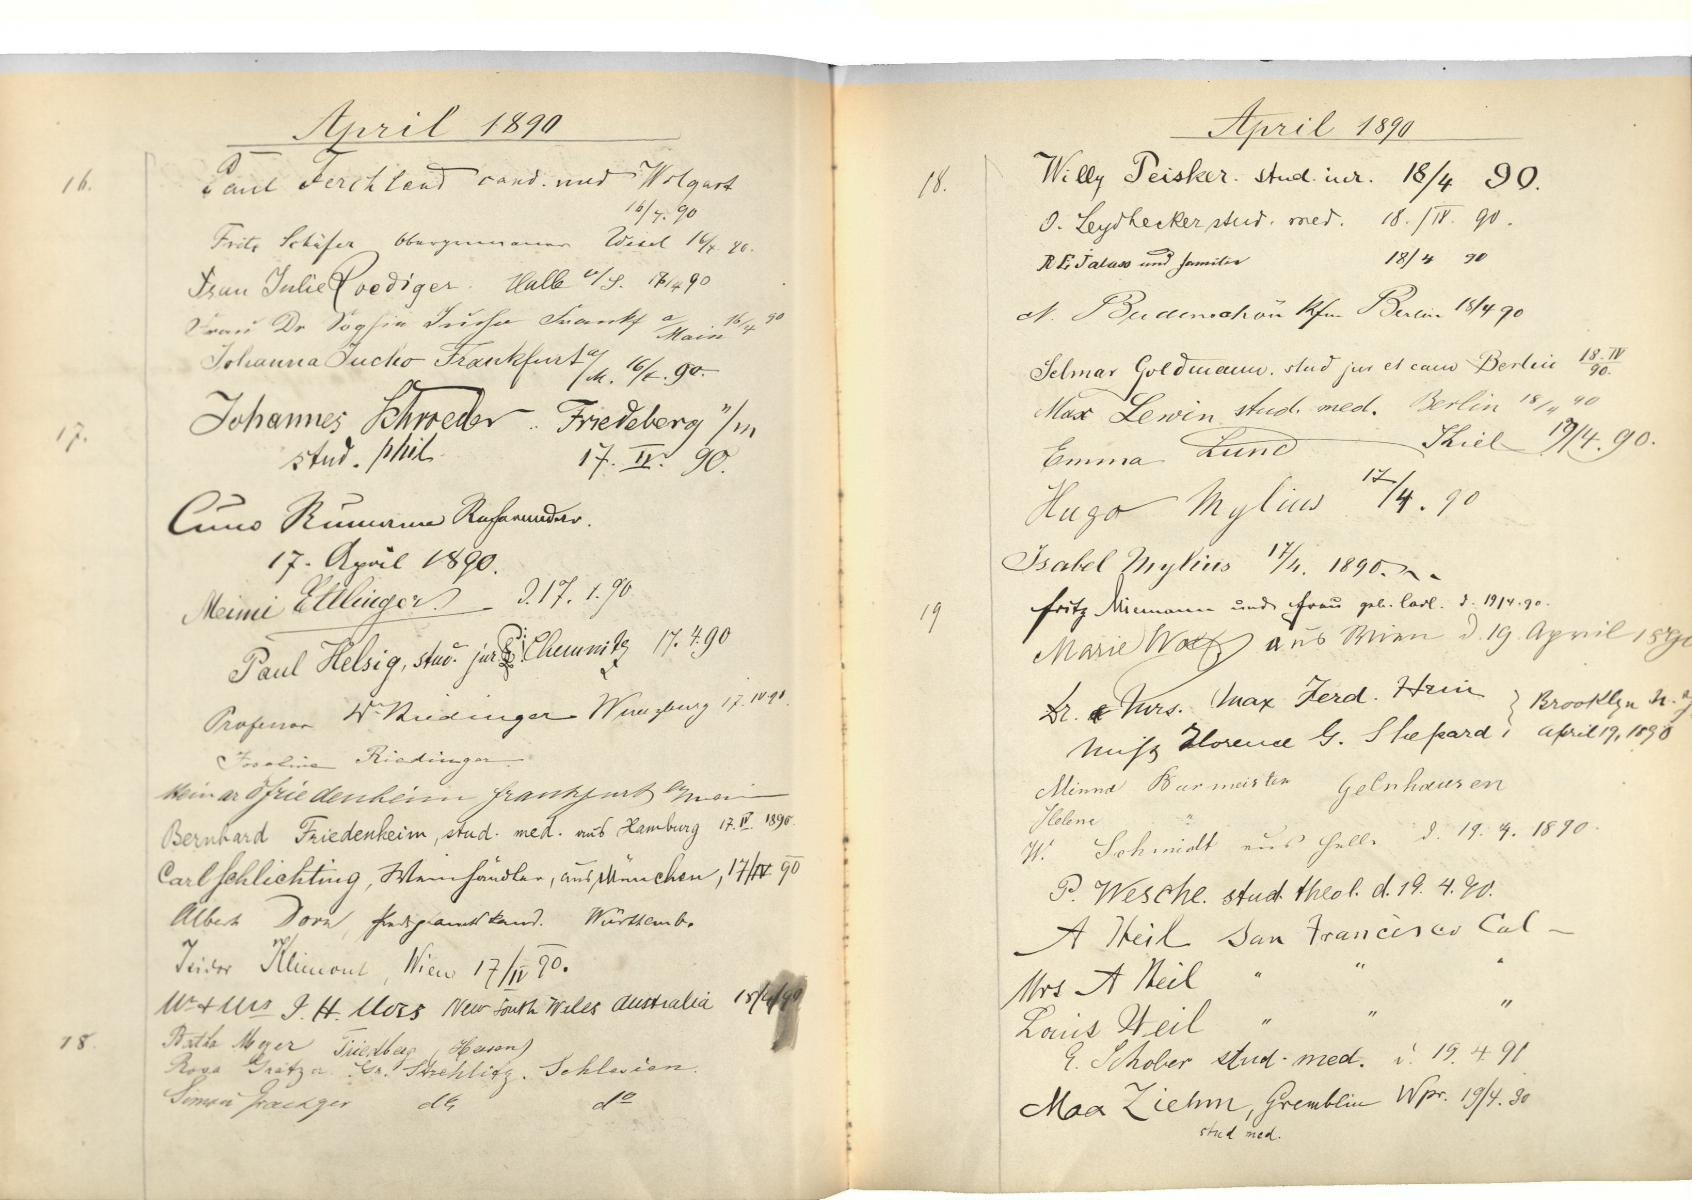 April 1890
16.
Paul Ferchland cand. med Wolgast
16/4. 90
Fritz Schäfer Wesel 16/4 90.
Frau Julie Roediger. Halle a/S. 16/4 90
Frau Dr Sophie Jucho Frankf a/Main 16/4 90
Johanna Jucho Frankfurt a/M. 16/4. 90.
17.
Johannes Schroeder. Friedeberg n/m
stud. phil. 17. IV. 90.
Cuno Rümann Referendar.
17. April 1890.
Meimi Ettlinger d. 17. 4. 90
Paul Helsig, stud. jur. Chemnitz 17.4.90
Professor Riedinger Würzburg 17. IV 90.
Josefine Riedinger
Friedenheim Frankfurt a/Main
Bernhard Friedenheim, stud. med. aus Hamburg 17. IV. 1890.
Carl Schlichting, Weinhändler, aus München, 17/IV 90
Albert Dorn, Württembg.
Isidor Klimont, Wien 17/IV 90.
Mr & Mrs J. H. Moss New South Wales Australia 18/4/90
18.
Betta Meyer Friedberg (Hessen)
Rosa Graetzer Gr. Strehlitz. Schlesien.
Simon Graetzer do do
April 1890
18.
Willy Peisker. stud. iur. 18/4 90.
O. Leydhecker, stud. med. 18. /IV. 90.
und Familie 18/4 90
N. Budenschön Kfm Berlin 18/4 90
Selmar Goldmann. stud jur et cam Berlin 18. IV 90.
Max Lewin stud. med. Berlin 18/4 90
Emma Lund Kiel 19/4. 90.
Hugo Mylius 17/4. 90
Isabel Mylius 17/4. 1890.
19
Fritz Niemann und Frau geb. Carl. d. 19/4. 90.
Marie Wolff aus d. 19. April 1890
Dr. & Mrs. Max Ferd. Hein } Brooklyn N. Y
Miss Florence G. Shepard, } April 19, 1890
Minna Burmeister Gelnhausen
Helene "
W. Schmidt aus Halle d. 19. 4. 1890.
P. Wesche. stud. theol. d. 19. 4. 90.
A Heil San Francisco Cal –
Mrs A Heil " " "
Louis Heil " " "
E. Schober stud. med. d. 19. 4 90
Max Ziehm, Gremblin Wpr. 19/4. 90
stud med.